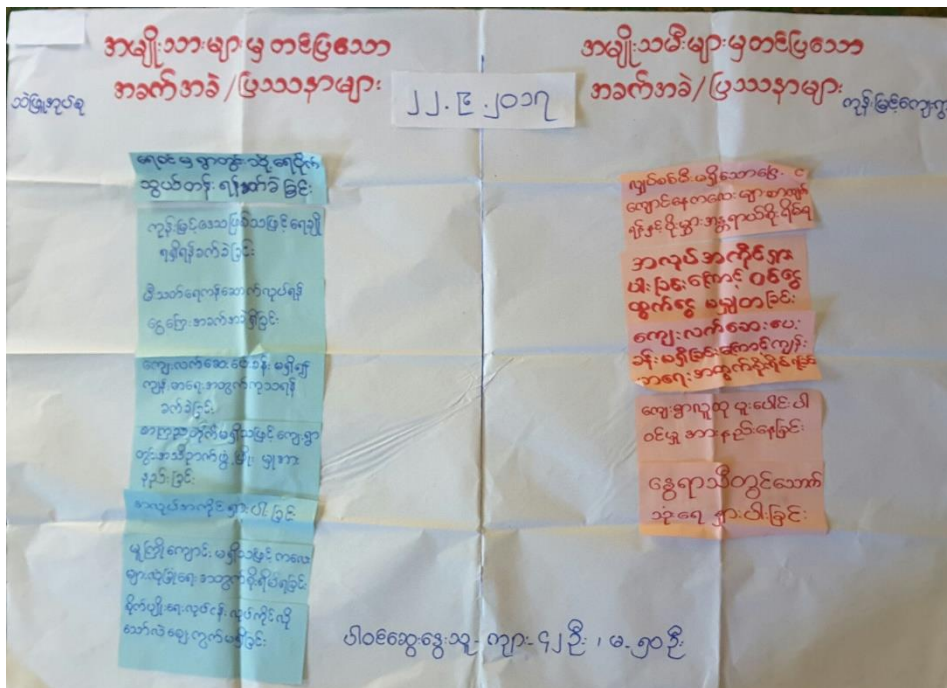 အမျိုးသားများမှ တင်ပြသော
အခက်အခဲ/ပြဿနာများ
သဲဖြူအုပ်စု
၂၂.၉.၂၀၁၇
အမျိုးသမီးများမှတင်ပြသော
အခက်အခဲ/ပြဿနာများ
ကုန်းမြင့်ကျေးရွာ
ရေဝင်မှ ရွာတွင်းသို့ ရေပိုက်
သွယ်တန်းရန်ခက်ခဲခြင်း
ကုန်းမြင့်ဒေသဖြစ်သဖြင့်ရေချို
ရရှိရန်ခက်ခဲခြင်း
မီးသတ်ရေကန်ဆောက်လုပ်ရန်
ငွေကြေးအခက်အခဲရှိခြင်း
ကျေးလက်ဆေးပေးခန်းမရှိ၍
ကျန်းမာရေးအတွက်ကုသရန်
ခက်ခဲခြင်း
စာကြည့်တိုက်မရှိသဖြင့်ကျေးရွာ
တွင်းအသိဉာဏ်ဖွံ့ဖြိုးမှုအား
နည်းခြင်း
အလုပ်အကိုင်ရှားပါးခြင်း
မူကြိုကျောင်းမရှိသဖြင့်ကလေး
များလုံခြုံရေးအတွက်စိုးရိမ်ရခြင်း
စိုက်ပျိုးရေးလုပ်ငန်းလုပ်ကိုင်လို
သော်လဲချေးငွေမရှိခြင်း
လျှပ်စစ်မီးမရှိသောကြောင့်
ကျောင်းနေကလေးများစာကျက်
ရန်နှင့်ပိုးမွှားအန္တရာယ်စိုးရိမ်ရ
အလုပ်အကိုင်ရှား
ပါးခြင်းကြောင့်ဝင်ငွေ
ထွက်ငွေ မမျှတခြင်း
ကျေးလက်ဆေးပေး
ခန်းမရှိခြင်းကြောင့်ကျန်း
မာရေးအတွက်စိုးရိမ်ရခြင်း
ကျေးရွာလူထု ပူးပေါင်းပါ
ဝင်မှုအားနည်းနေခြင်း
နွေရာသီတွင်သောက်
သုံးရေ ရှားပါးခြင်း
ပါဝင်ဆွေးနွေးသူ- ကျား-၄၂ဦး၊ မ-၅၀ဦး